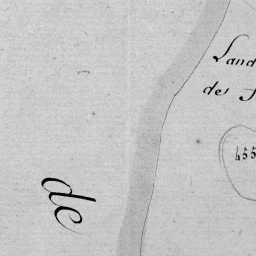 Land
des
455
de